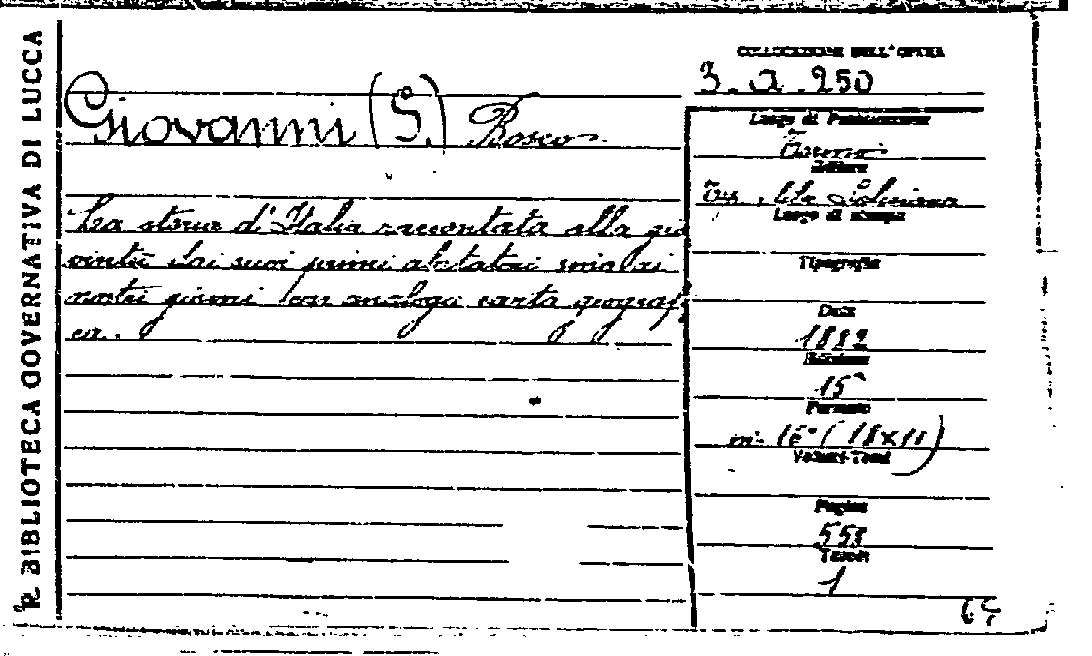 R. BIBLIOTECA GOVERNATIVA DI LUCCA
COLLOCAZIONE DELL'OPERA
3. a. 250
Giovanni (S.) Bosco
La storia d'Italia raccontata alla gio
ventù dai suoi primi abitatori sino ai
nostri giorni con analoga carta geografi
ca.
Luogo di Pubblicazione
Torino
Editore
Tip. Lib. Salesiana
Luogo di stampa
Tipografia
Data
1882
Edizione
15ª
Formato
in-16° (18x11)
Volumi-Tomi
Pagine
558
Tavole
1